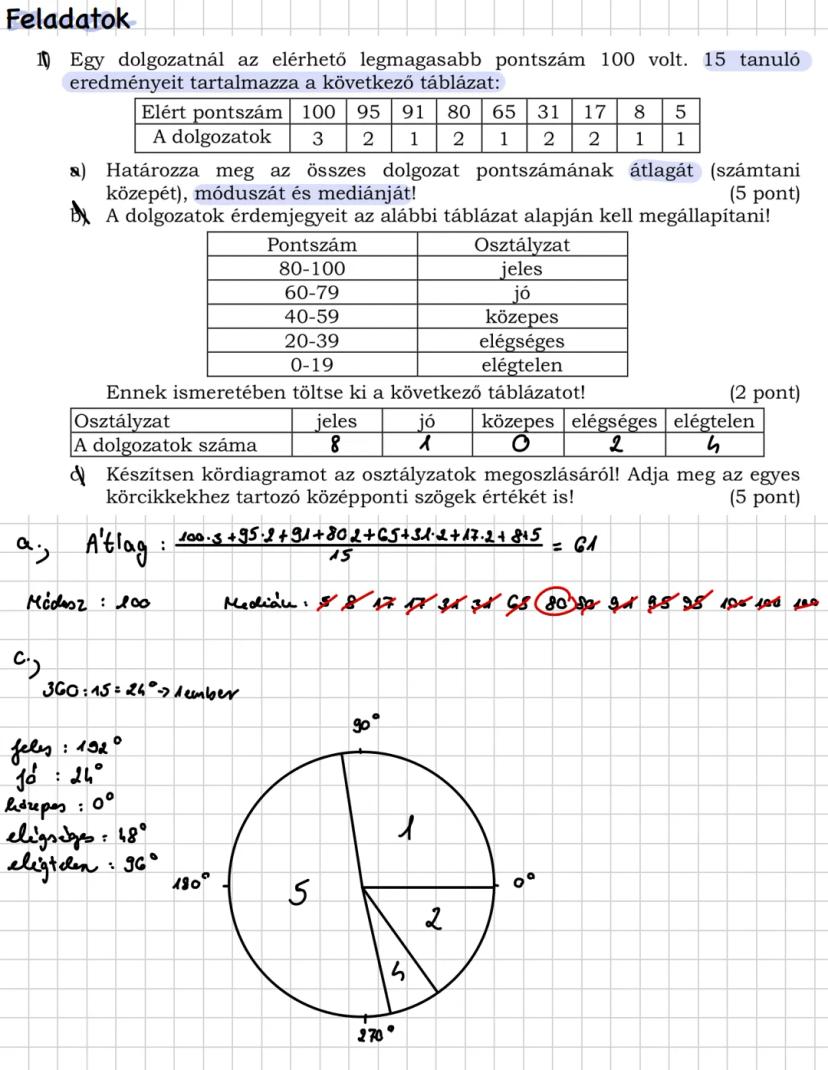 Feladatok
1) Egy dolgozatnál az elérhető legmagasabb pontszám 100 volt. 15 tanuló
eredményeit tartalmazza a következő táblázat:
Elért pontszám 100 95 91 80 65 31 17 8 5
A dolgozatok 3 2 1 2 1 2 2 1 1
a) Határozza meg az összes dolgozat pontszámának átlagát (számtani
közepét), móduszát és mediánját! (5 pont)
b) A dolgozatok érdemjegyeit az alábbi táblázat alapján kell megállapítani!
Pontszám Osztályzat
80-100 jeles
60-79 jó
40-59 közepes
20-39 elégséges
0-19 elégtelen
Ennek ismeretében töltse ki a következő táblázatot! (2 pont)
Osztályzat jeles jó közepes elégséges elégtelen
A dolgozatok száma 8 1 0 2 4
c) Készítsen kördiagramot az osztályzatok megoszlásáról! Adja meg az egyes
körcikkekhez tartozó középponti szögek értékét is! (5 pont)
a.) Átlag : 100·3+95·2+91+80·2+65+31·2+17·2+8+5
15
= 61
Módusz : 100 Medián : 5 8 17 17 31 31 65 80 80 91 95 95 100 100 100
c.)
360:15=24°-> 1 ember
90°
jeles : 192°
jó : 24°
közepes : 0°
elégséges : 48°
elégtelen : 96°
1
180° 5 0°
2
4
270°